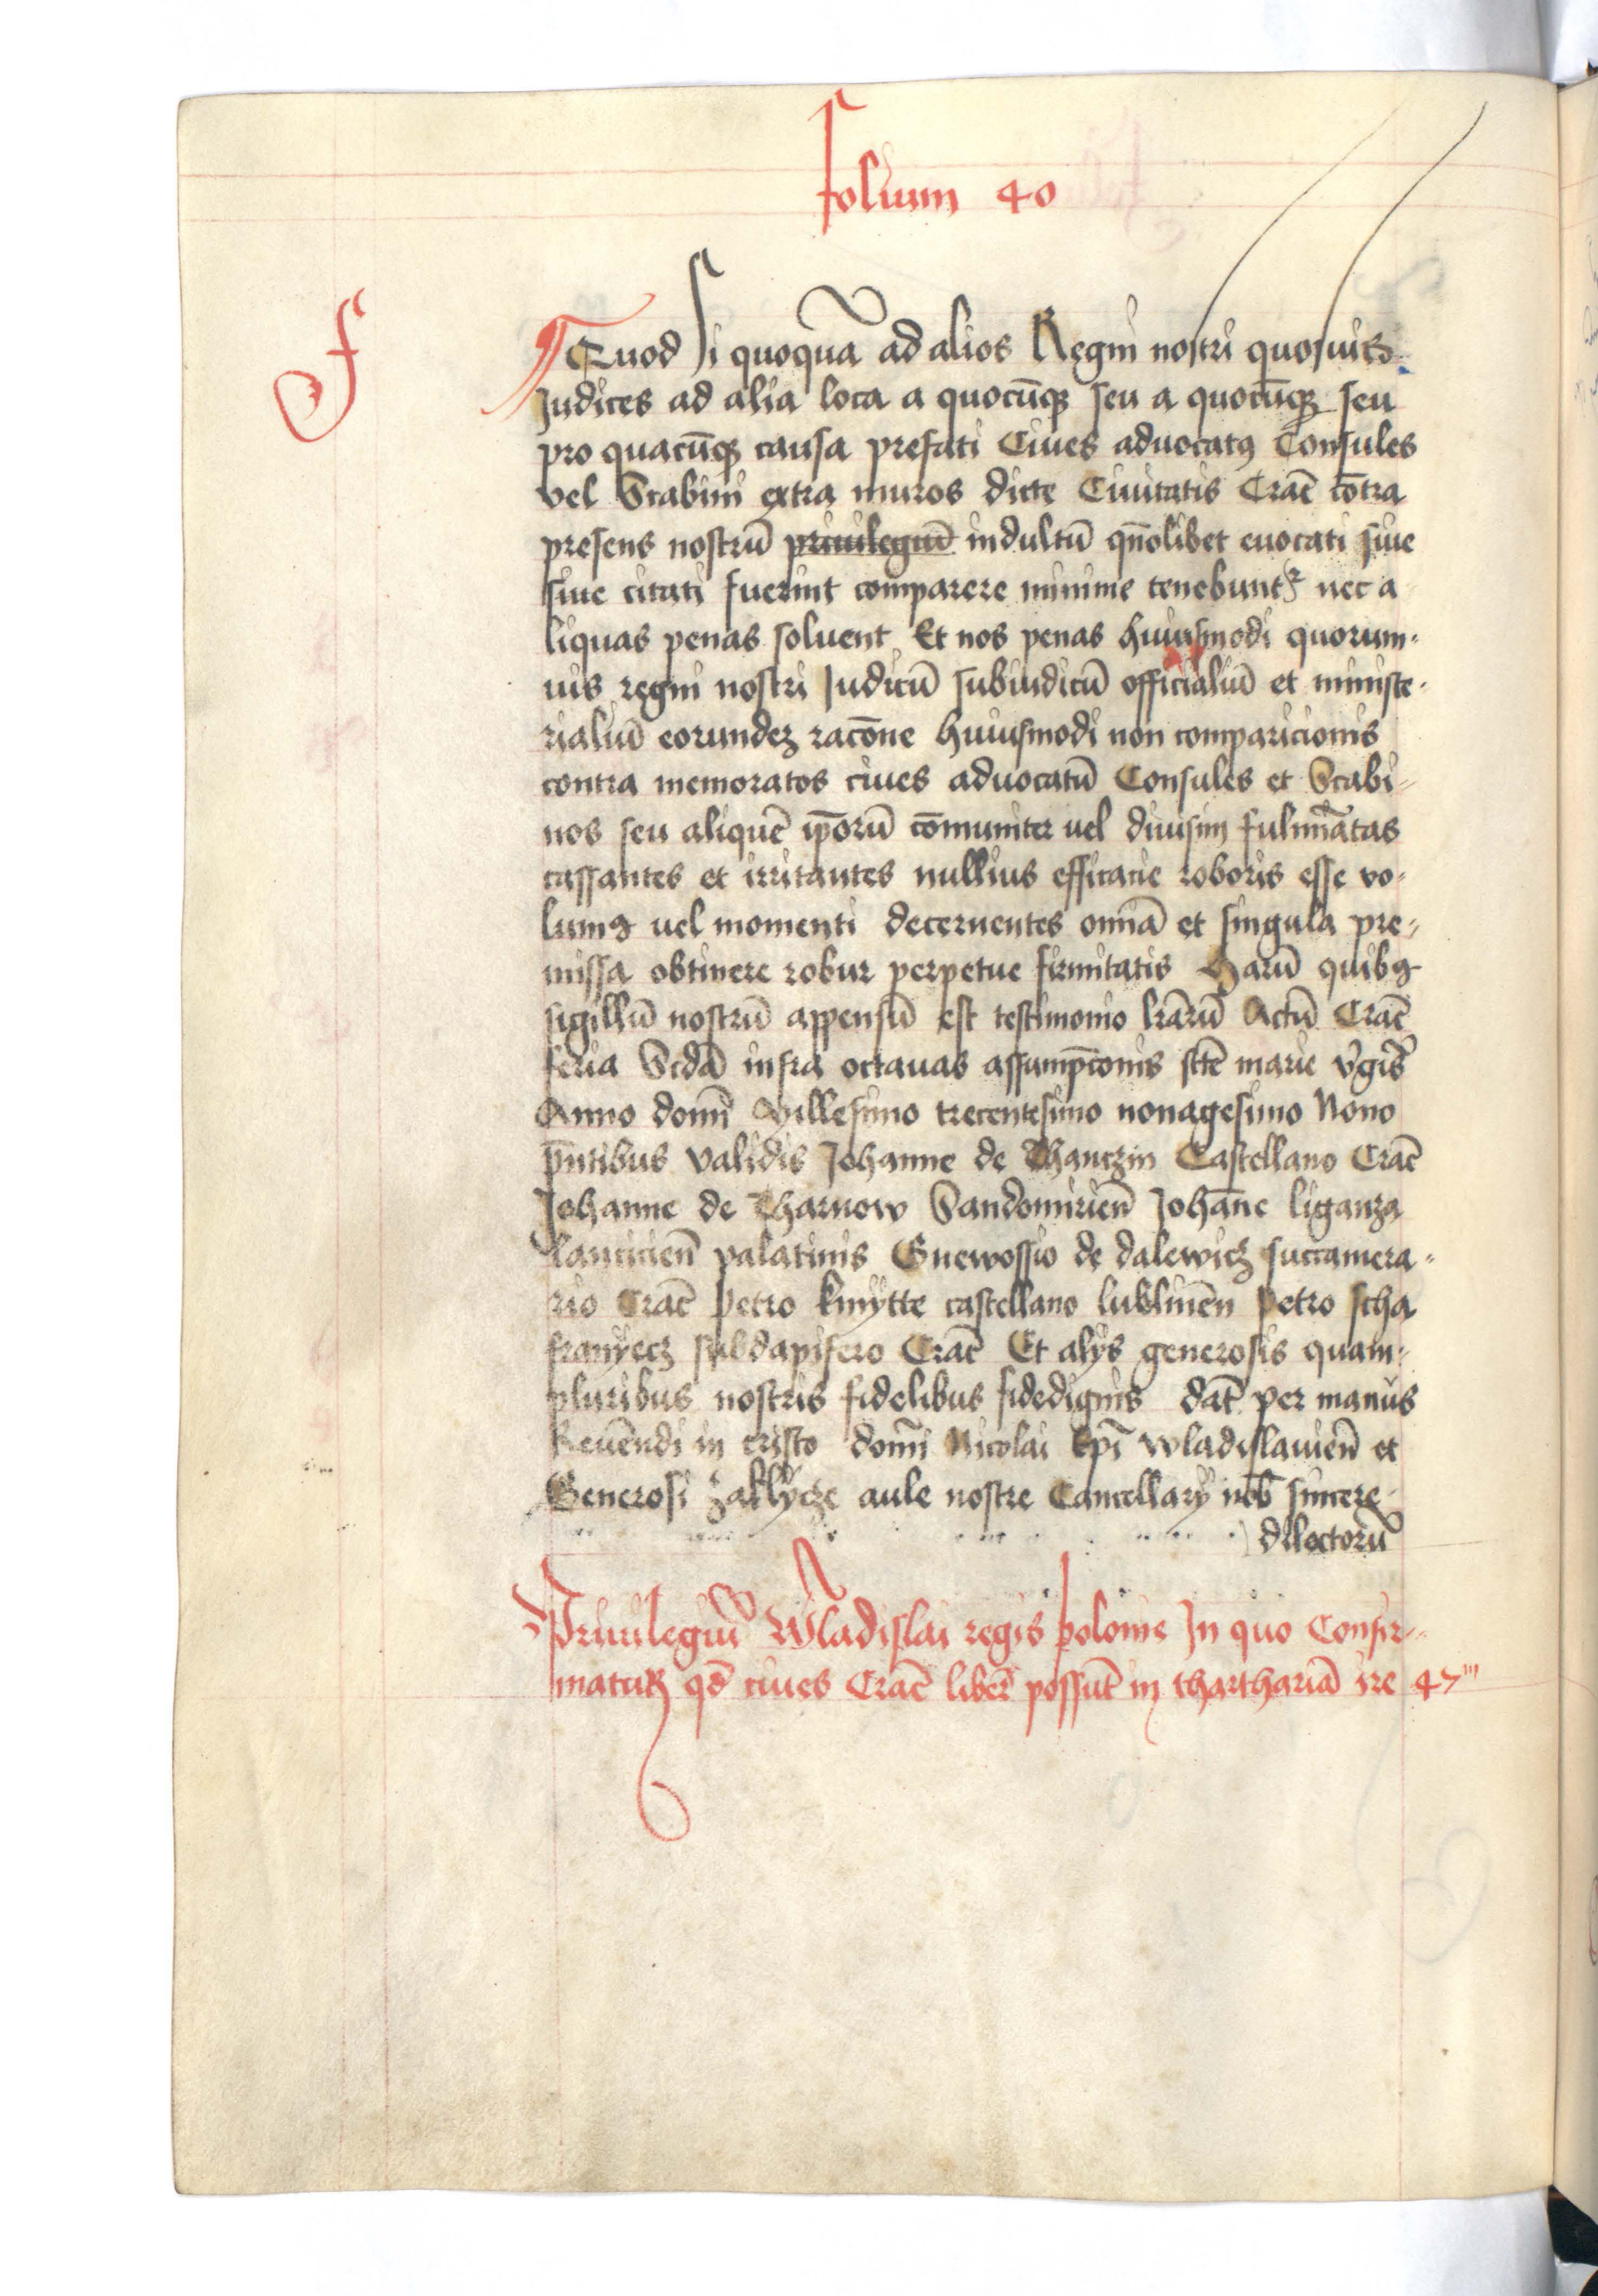 folium 40
f
Quod si quoquā ad alios Regni nostri quosuis
Judices ad alia loca a quocūqꝫ seu a quocūqꝫ seu
pro quacūqꝫ causa prefati Ciues aduocatꝰ Consules
vel Scabini extra muros dicte Ciuitatis Crac̄ cōtra
presens nostrū priuilegiū indultū qn̄olibet euocati siue
siue citati fuerint comparere minime tenebuntᷣ nec a
liquas penas soluent Et nos penas huiusmodi quorum-
uis regni nostri Judicū subiudicū officialiū et ministe-
rialiū eorundeꝫ racōne huiusmodi non comparicionis
contra memoratos ciues aduocatū Consules et Scabi-
nos seu aliquē ip̄orū cōmuniter vel diuisim fulminatas
cassantes et irritantes nullius efficacie roboris esse vo-
lumꝰ vel momenti decernentes omnia et singula pre-
missa obtinere robur perpetue firmitatis Harū quibꝰ
sigillū nostrū appensū est testimonio lr̄arū Actū Crac̄
feria Scd̄a infra octauas assumpc̄onis sc̄te marie v̄gis
Anno domī Millesimo trecentesimo nonagesimo Nono
p̄ntibus validis Johanne de Thanczin Castellano Crac̄
Johanne de Tharnow Sandomirien̄ Johāne liganza
lancicien̄ palatinis Gnewossio de dalewicz succamera-
rio Crac̄ Petro kmÿtte castellano lublinēn Petro scha
franÿecz subdapifero Crac̄ Et alÿs generosis quam-
pluribus nostris fidelibus fidedignis dat̄ per manus
Reuēndi in cristo domī Nicolai Ep̄i wladislauien̄ et
Generosi Zaklÿcze aule nostre Cancellarÿ nob̄ sincere
dilectorū
Priuilegiū Wladislai regis polonie In quo Confir-
matur qd̄ ciues Crac̄ liber̄ possūt in thartharīa ire 47